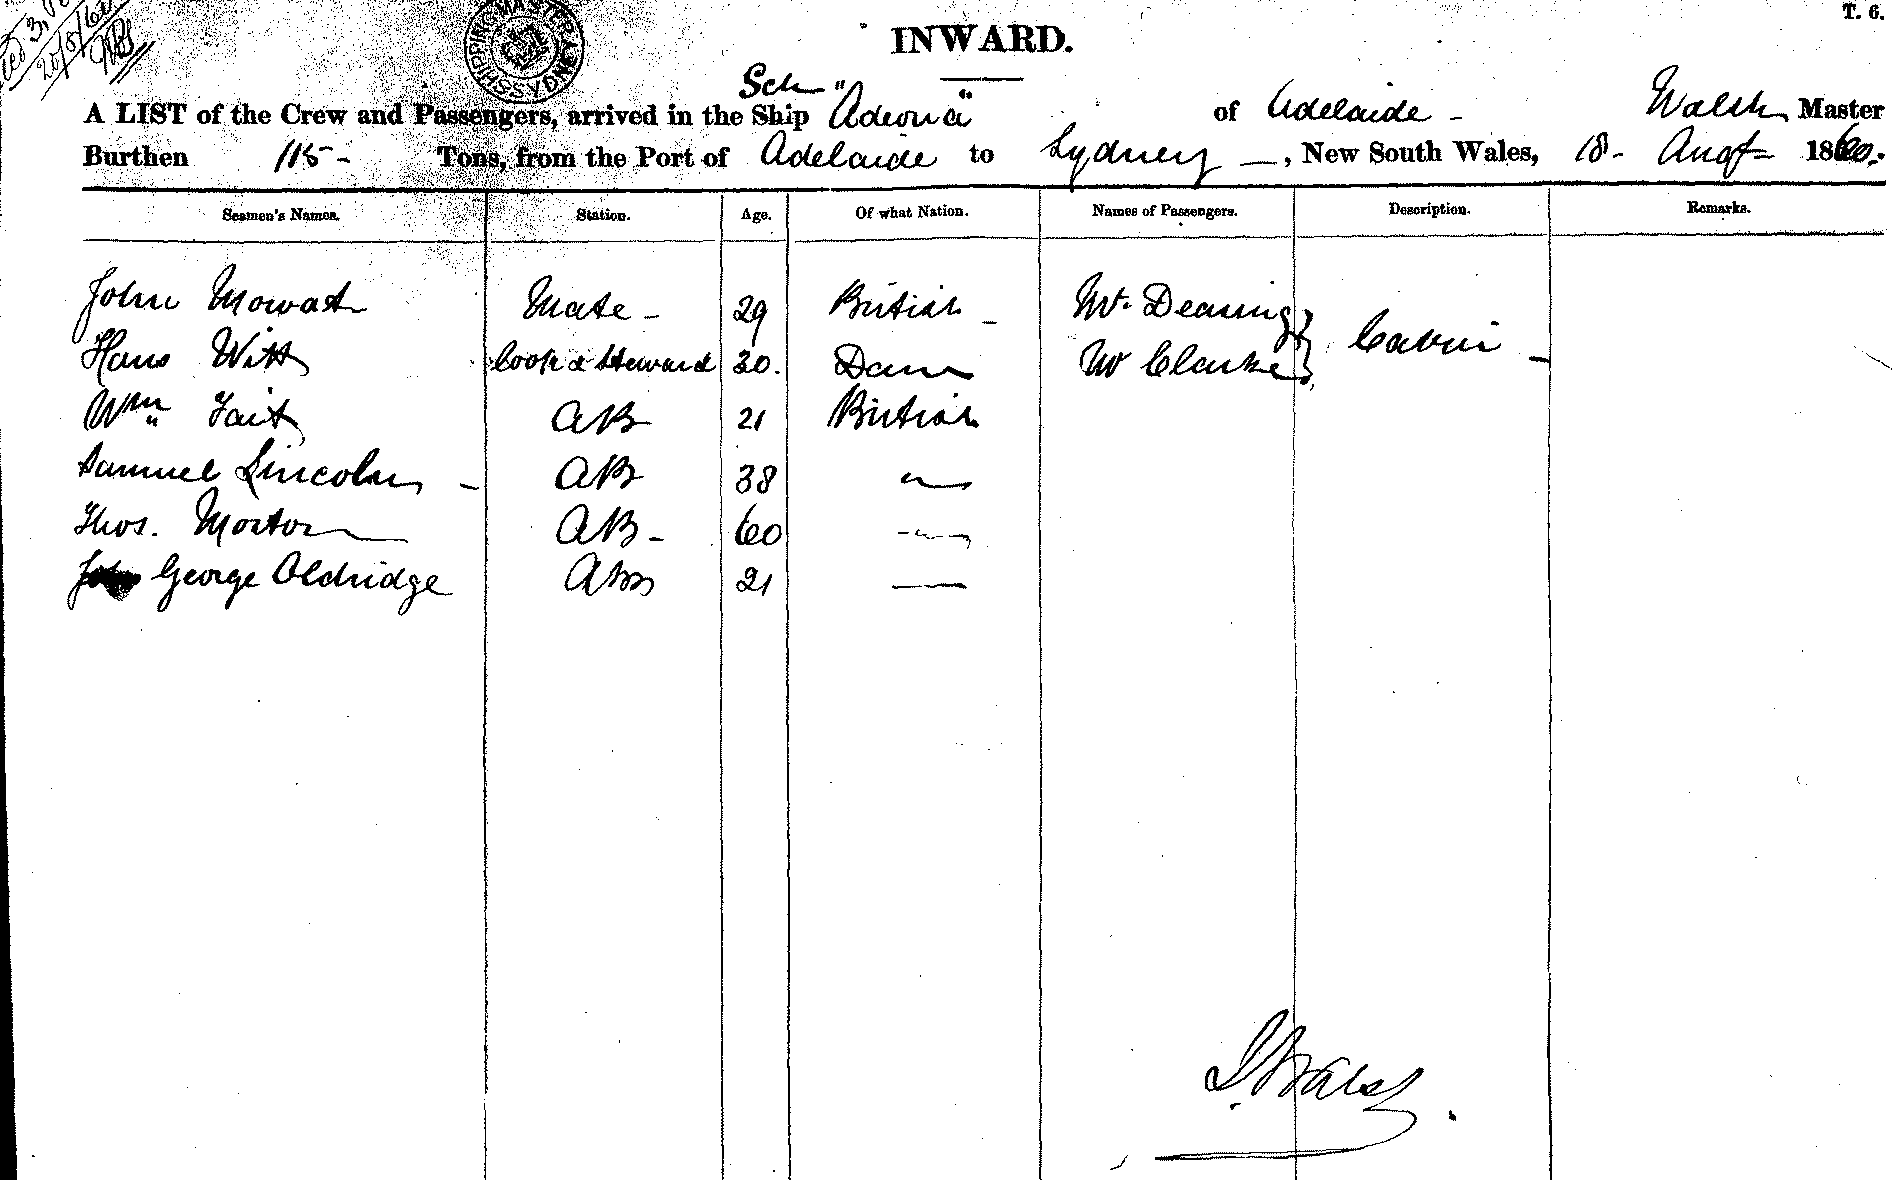 T. 6.
20/8/60
SHIPPING MASTER
INWARD.
Sch
A LIST of the Crew and Passengers, arrived in the Ship "Adeona" of Adelaide - Walsh Master
Burthen 115 - Tons, from the Port of Adelaide to Sydney -, New South Wales, 18 - Augt 1860.
Seamen's Names. Station. Age. Of what Nation. Names of Passengers. Description. Remarks.
John Mowat Mate - 29 British - Mr. Dearing
Hans Witt Cook & Steward 30. Dane Mr Clarke Cabin -
Wm Tait AB 21 British
Samuel Lincoln - AB 38 "
Thos. Morton AB - 60 "
George Aldridge 21 —
Walsh